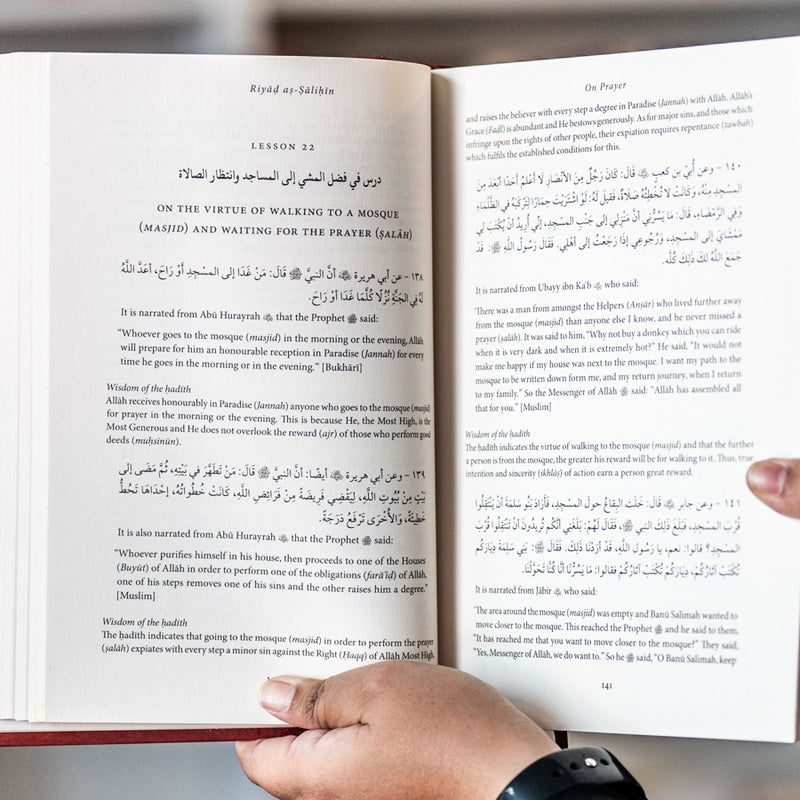 Riyāḍ aṣ-Ṣāliḥīn
LESSON 22
درس في فضل المشي إلى المساجد وانتظار الصلاة
ON THE VIRTUE OF WALKING TO A MOSQUE
(MASJID) AND WAITING FOR THE PRAYER (ṢALĀH)
١٣٨ - عن أبي هريرة ﷺ أنَّ النبيَّ ﷺ قَالَ: مَنْ غَدَا إلى المسْجِدِ أَوْ رَاحَ، أعَدَّ اللَّهُ
لَهُ فِي الجَنَّةِ نُزُلًا كُلَّمَا غَدَا أَوْ رَاحَ.
It is narrated from Abū Hurayrah that the Prophet ﷺ said:
“Whoever goes to the mosque (masjid) in the morning or the evening, Allāh
will prepare for him an honourable reception in Paradise (Jannah) for every
time he goes in the morning or in the evening.” [Bukhārī]
Wisdom of the ḥadīth
Allāh receives honourably in Paradise (Jannah) anyone who goes to the mosque (masjid)
for prayer in the morning or the evening. This is because He, the Most High, is the
Most Generous and He does not overlook the reward (ajr) of those who perform good
deeds (muḥsinūn).
١٣٩ - وعن أبي هريرة أيضًا: أنَّ النبيَّ ﷺ قَالَ: مَنْ تَطَهَّرَ في بَيْتِهِ، ثُمَّ مَضَى إلى
بَيْتٍ مِنْ بُيُوتِ اللَّهِ، لِيَقْضِي فَرِيضَةً مِنْ فَرَائِضِ اللَّهِ، كَانَتْ خُطُوَاتُهُ، إحْدَاهَا تَحُطُّ
خَطِيئَةً، وَالأُخْرَى تَرْفَعُ دَرَجَةً.
It is also narrated from Abū Hurayrah that the Prophet ﷺ said:
“Whoever purifies himself in his house, then proceeds to one of the Houses
(Buyūt) of Allāh in order to perform one of the obligations (farā’iḍ) of Allāh,
one of his steps removes one of his sins and the other raises him a degree.”
[Muslim]
Wisdom of the ḥadīth
The ḥadīth indicates that going to the mosque (masjid) in order to perform the prayer
(ṣalāh) expiates with every step a minor sin against the Right (Ḥaqq) of Allāh Most High,
On Prayer
and raises the believer with every step a degree in Paradise (Jannah) with Allāh. Allāh’s
Grace (Faḍl) is abundant and He bestows generously. As for major sins, and those which
infringe upon the rights of other people, their expiation requires repentance (tawbah)
which fulfils the established conditions for this.
١٤٠ - وعن أُبيِّ بن كعبٍ قَالَ: كَانَ رَجُلٌ مِنَ الأنْصَارِ لَا أَعْلَمُ أحَدًا أبْعَدَ مِنَ
المسْجِدِ مِنْهُ، وَكَانَتْ لَا تُخْطِئُهُ صَلَاةٌ، فَقِيلَ لَهُ: لَوِ اشْتَرَيْتَ حِمَارًا لِتَرْكَبَهُ في الظَّلْمَاءِ
وَفِي الرَّمْضَاءِ، قَالَ: مَا يَسُرُّنِي أنَّ مَنْزِلِي إلى جَنْبِ المسْجِدِ، إنِّي أُرِيدُ أنْ يُكْتَبَ لِي
مَمْشَايَ إلى المسْجِدِ، وَرُجُوعِي إذَا رَجَعْتُ إلى أهْلِي. فَقَالَ رَسُولُ اللَّهِ ﷺ: قَدْ
جَمَعَ اللَّهُ لَكَ ذَلِكَ كُلَّهُ.
It is narrated from Ubayy ibn Ka‘b who said:
‘There was a man from amongst the Helpers (Anṣār) who lived further away
from the mosque (masjid) than anyone else I know, and he never missed a
prayer (ṣalāh). It was said to him, “Why not buy a donkey which you can ride
when it is very dark and when it is extremely hot?” He said, “It would not
make me happy if my house was next to the mosque. I want my path to the
mosque to be written down form me, and my return journey, when I return
to my family.” So the Messenger of Allāh ﷺ said: “Allāh has assembled all
that for you.” [Muslim]
Wisdom of the ḥadīth
The ḥadīth indicates the virtue of walking to the mosque (masjid) and that the further
a person is from the mosque, the greater his reward will be for walking to it. Thus, true
intention and sincerity (ikhlāṣ) of action earn a person great reward.
١٤١ - وعن جابر قَالَ: خَلَتِ البِقَاعُ حولَ المسْجِدِ، فَأَرَادَ بَنُو سَلِمَةَ أنْ يَنْتَقِلُوا
قُرْبَ المسْجِدِ، فَبَلَغَ ذَلِكَ النبيَّ ﷺ، فَقَالَ لَهُمْ: بَلَغَنِي أنَّكُم تُرِيدُونَ أنْ تَنْتَقِلُوا قُرْبَ
المسْجِدِ؟ قالوا: نعم، يا رسول اللَّهِ، قَدْ أرَدْنَا ذَلِكَ. فَقَالَ: بَنِي سَلِمَةَ دِيَارَكُم
تُكْتَبْ آثَارُكُمْ، دِيَارَكُمْ تُكْتَبْ آثَارُكُمْ فقالوا: مَا يَسُرُّنَا أنَّا كُنَّا تَحَوَّلْنَا.
It is narrated from Jābir who said:
‘The area around the mosque (masjid) was empty and Banū Salimah wanted to
move closer to the mosque. This reached the Prophet ﷺ and he said to them,
“It has reached me that you want to move closer to the mosque?” They said,
“Yes, Messenger of Allāh, we do want to.” So he ﷺ said, “O Banū Salimah, keep
141